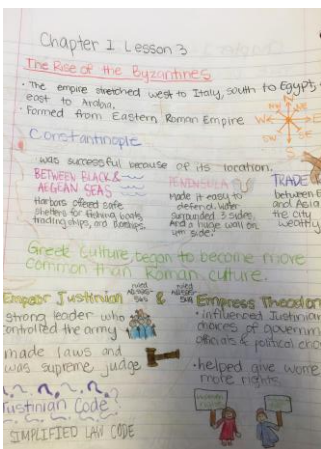 Chapter 1 Lesson 3
The Rise of the Byzantines
• The empire stretched west to Italy, south to Egypt,
east to Arabia.
• Formed from Eastern Roman Empire
N
W E
S
SE
Constantinople
was successful because of its location.
BETWEEN BLACK &
AEGEAN SEAS
Harbors offered safe
shelters for fishing boats,
trading ships, and
PENINSULA
made it easy to
defend. Water
surrounded 3 sides.
And a huge wall on
4th side.
TRADE
between E
and Asia
the city
wealthy
Greek culture began to become more
common than Roman culture.
Emperor Justinian
ruled
&
ruled
Empress Theodora
strong leader who
controlled the army
made laws and
was supreme judge
Justinian Code
SIMPLIFIED LAW CODE
• influenced Justinian
choices of governm
officials & political choi
• helped give wome
more rights.
women
rights